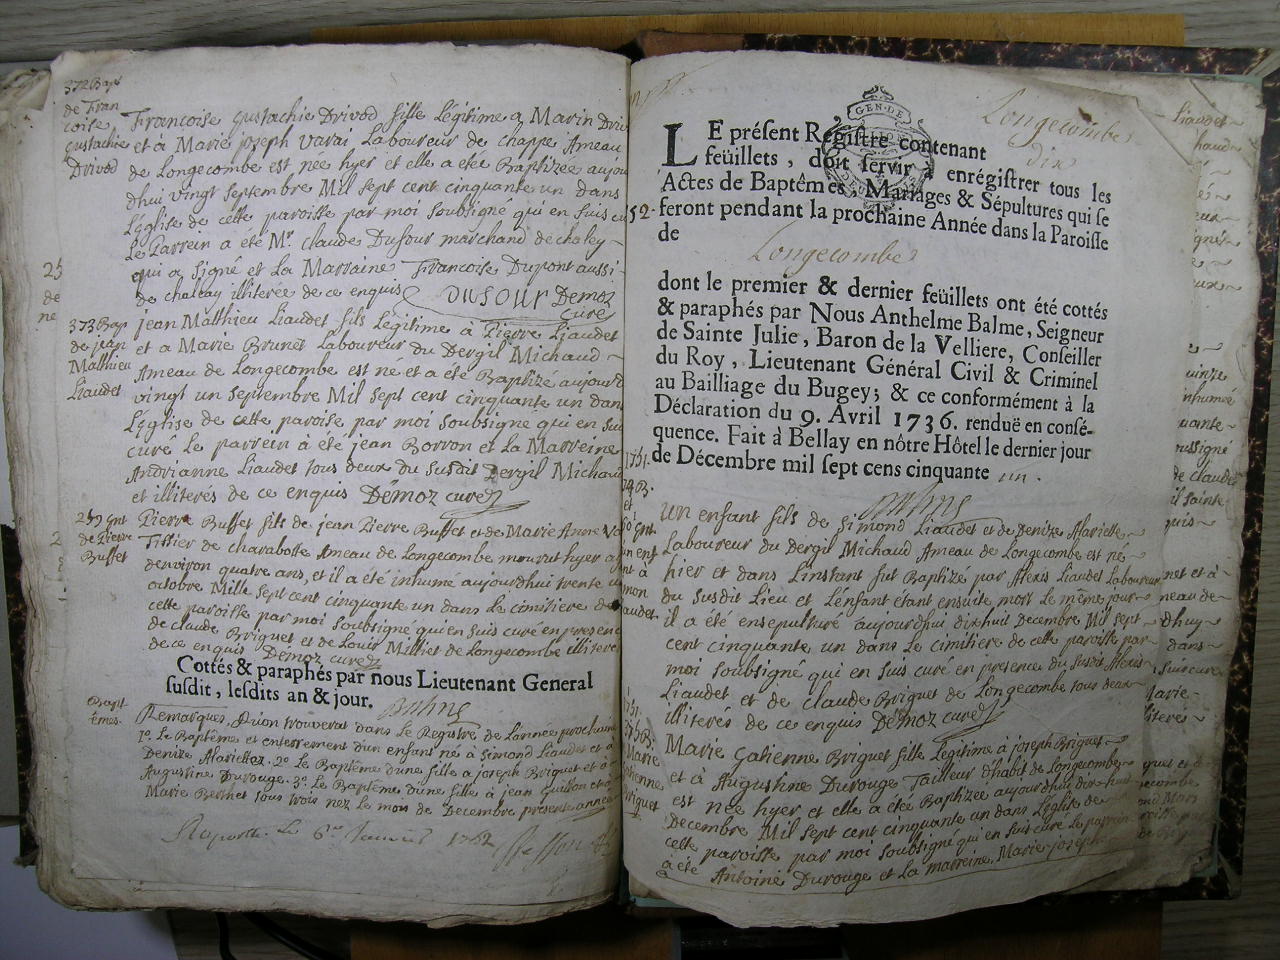 372 Bap
de Fran
coise
Eustachie
Drivod
Francoise Eustachie Drivod fille Légitime a Marin Driv
et à Marie joseph Varai Laboureur de chappe Ameau
de Longecombe est née hyer et elle a étée Baptizée aujour
dhui vingt Septembre Mil Sept cent cinquante un dans
Léglise de cette paroisse par moi Soubsigné qui en Suis cu
Le Parrein a été Mr. Claude Dufour marchand de chaley
qui a Signé et La Marraine Francoise Dupont aussi
de chaley illiterée de ce enquis Dufour Demoz
curé
373 Bap
de jean
Matthieu
Liaudet
jean Matthieu Liaudet fils Légitime à Pierre Liaudet
et a Marie Brunet Laboureur du Dergil Michaud
Ameau de Longecombe est né et a été Baptizé aujourd
vingt un Septembre Mil Sept cent cinquante un dan
Léglise de cette paroise par moi Soubsigné qui en Sui
curé Le parrein à été jean Borron et La Marreine
Andrianne Liaudet tous deux du Susdit Dergil Michaud
et illiterés de ce enquis Demoz curé
259 Ent
de Pierre
Buffet
Pierre Buffet fils de jean Pierre Buffet et de Marie Anne
Tissier de charabotte Ameau de Longecombe mourut hyer a
denviron quatre ans, et il a été inhumé aujourdhui trente u
octobre Mille Sept cent cinquante un dans le cimitiere de
cette paroisse par moi Soubsigné qui en Suis curé en presenc
de claude Briguet et de Louis Milliet de Longecombe illiteres
de ce enquis Demoz curé
Cottés & paraphés par nous Lieutenant General
susdit, lesdits an & jour.
Remarques, Quon trouverat dans le Registre de Lannée prochaine
1o. Le Baptême et enterrement dun enfant né à Simond Liaudet et à
Denize Mariettaz. 2o. Le Baptême dune fille a joseph Briguet et à
Augustine Durouge. 3o. Le Baptême dune fille à jean Guillon et à
Marie Berthet tous trois nez le mois de Decembre presente année
Raporté le 6me Janvier 1752
Longecombe
LE présent Registre contenant dix
feüillets, doit servir à enrégistrer tous les
Actes de Baptêmes, Mariages & Sépultures qui se
feront pendant la prochaine Année dans la Paroisse
de Longecombe
dont le premier & dernier feüillets ont été cottés
& paraphés par Nous Anthelme Balme, Seigneur
de Sainte Julie, Baron de la Velliere, Conseiller
du Roy, Lieutenant Général Civil & Criminel
au Bailliage du Bugey; & ce conformément à la
Déclaration du 9. Avril 1736. renduë en consé-
quence. Fait à Bellay en nôtre Hôtel le dernier jour
de Décembre mil sept cens cinquante un.
Un enfant fils de Simond Liaudet et de Denize Mariette
Laboureur du Dergil Michaud Ameau de Longecombe est né
hier et dans Linstant fut Baptizé par Alexis Liaudet Laboureur
du Susdit Lieu et Lénfant étant ensuite mort Le même jour
il a été ensepulturé aujourdhui dix huit Decembre Mil Sept
cent cinquante un dans Le cimitiere de cette paroisse par
moi Soubsigné qui en Suis curé en presence du Susdit Alexis
Liaudet et de claude Briguet de Longecombe tous deux
illiterés de ce enquis Demoz curé
Marie
Briguet
Marie Gatienne Briguet fille Legitime à joseph Briguet
et à Augustine Durouge Tailleur dhabit de Longecombe
est née hyer et elle a étée Baptizée aujourdhui dix huit
Decembre Mil Sept cent cinquante un dans Léglise de
cette paroisse par moi Soubsigné qui en Suis curé Le parrain
a été Antoine Durouge et La marreine Marie Joseph